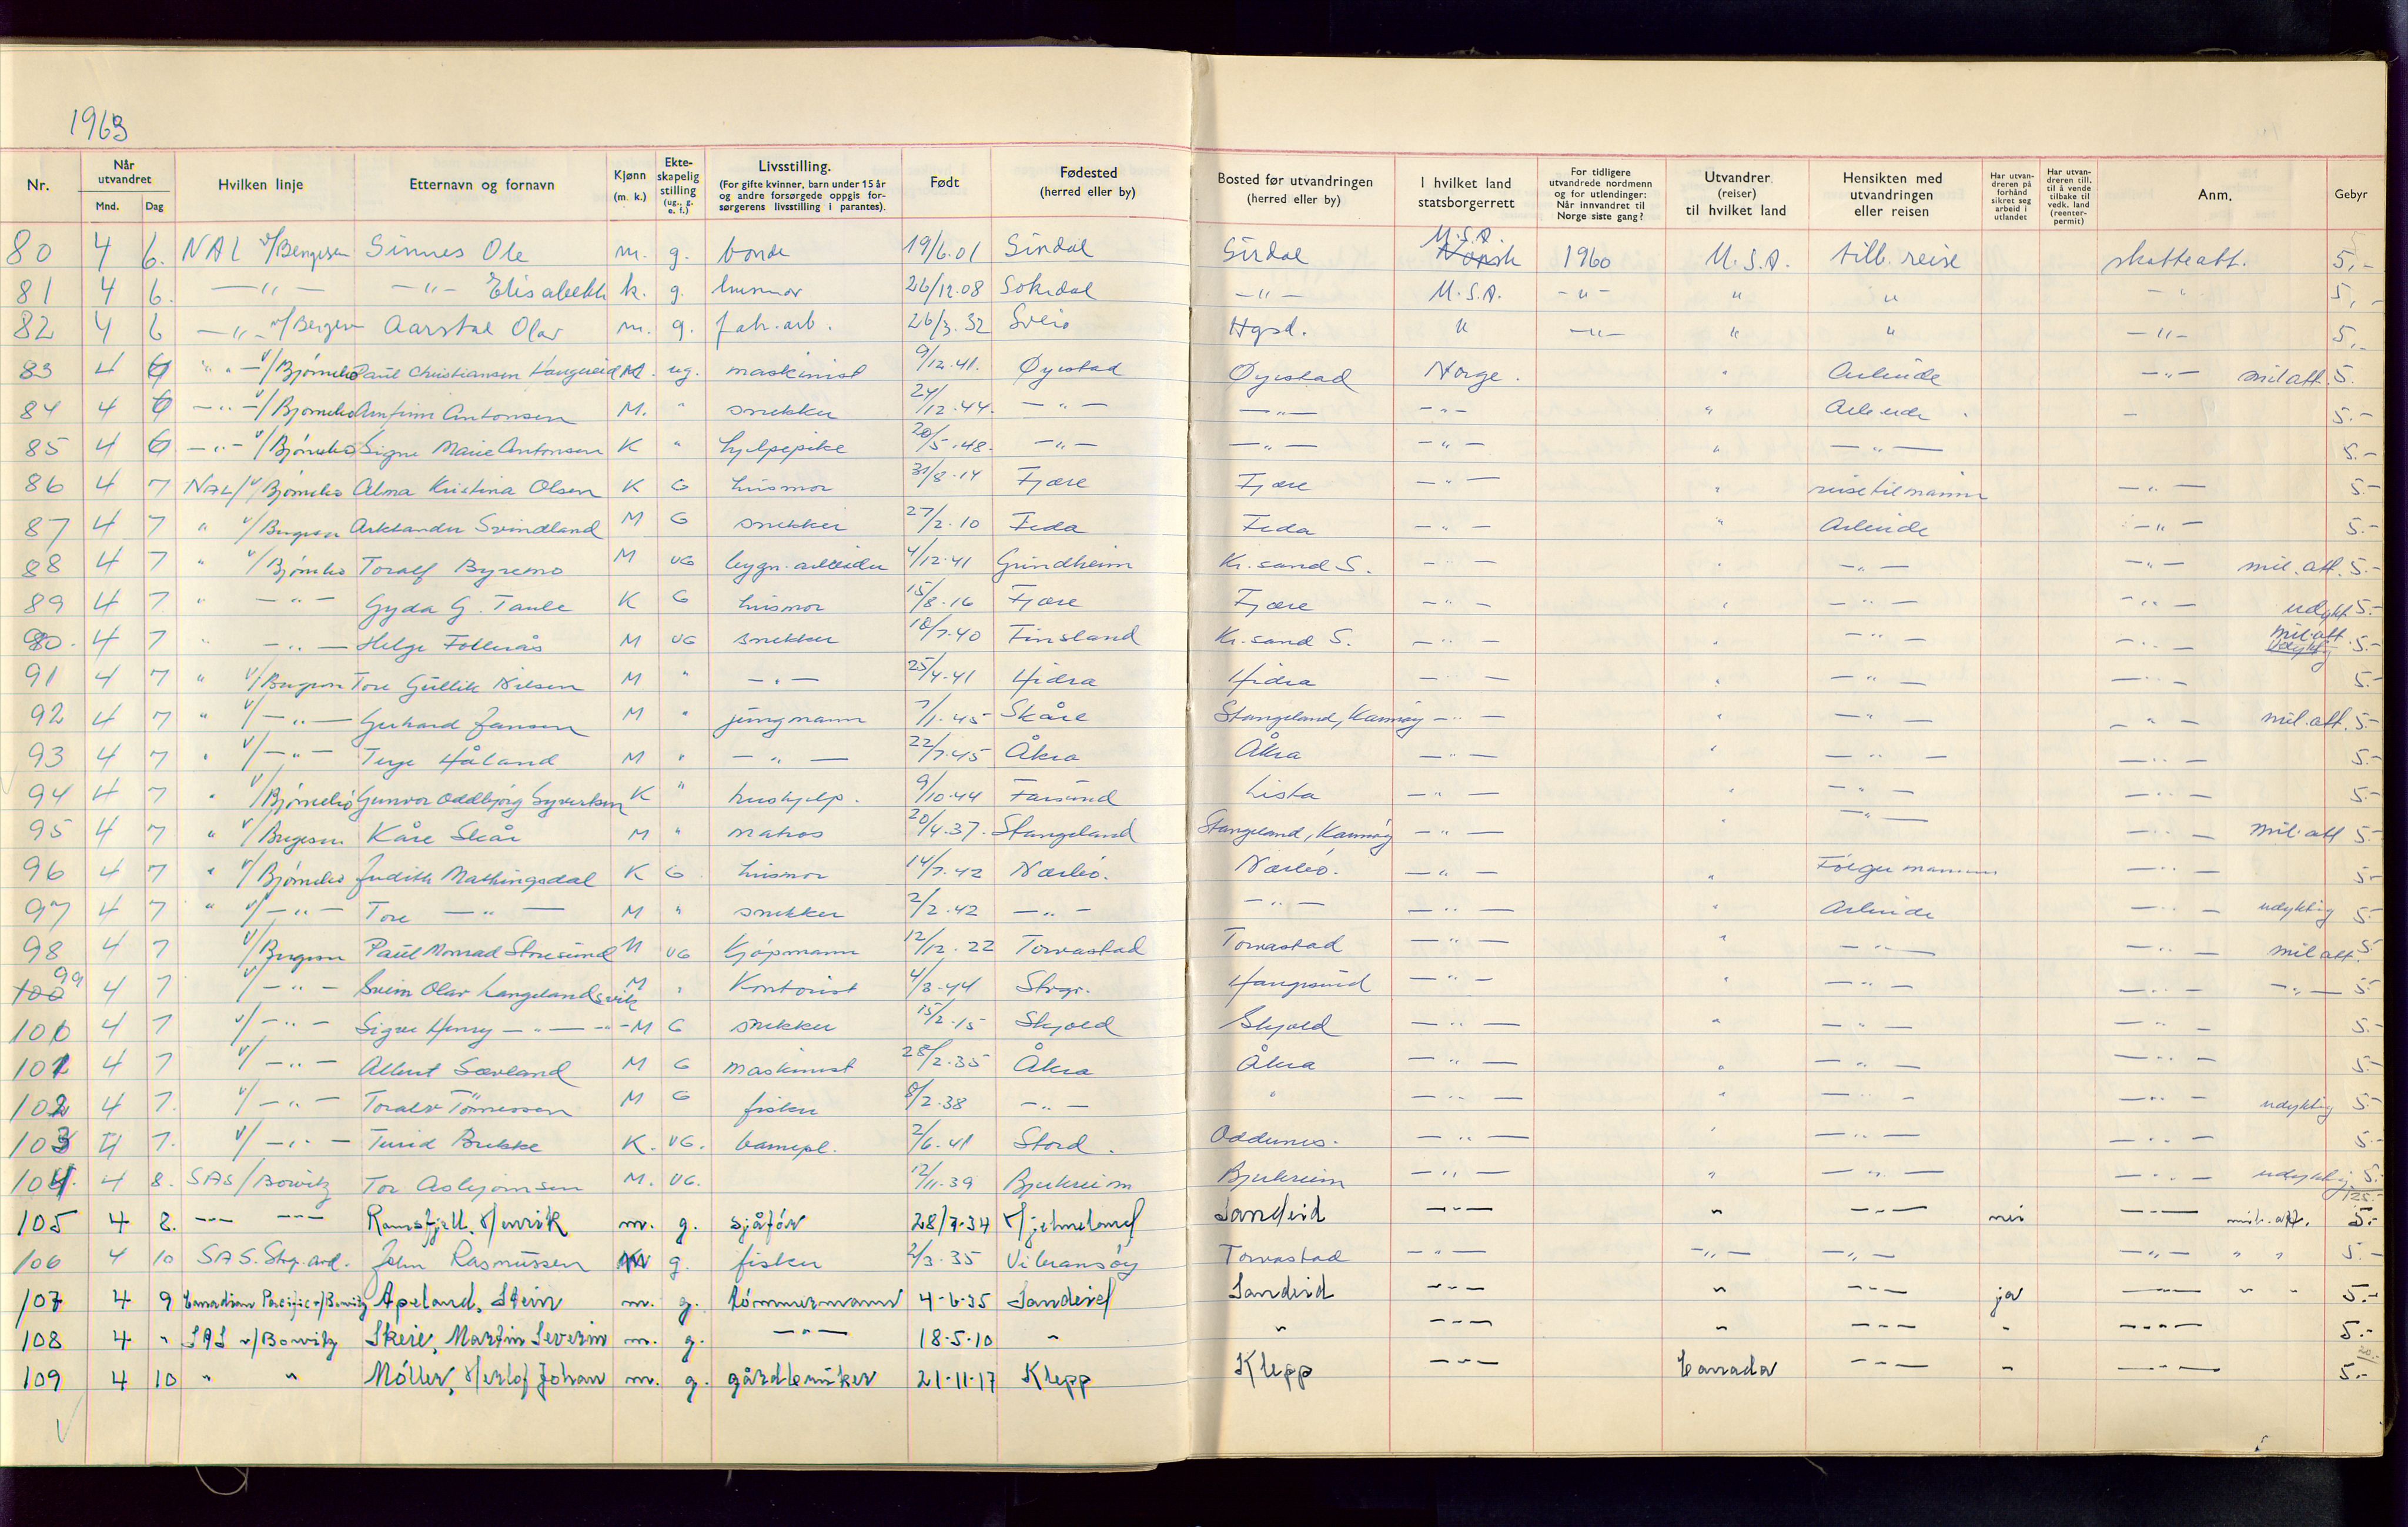 1963
Nr. Når utvandret Mnd. Dag Hvilken linje Etternavn og fornavn Kjønn (m. k.) Ekteskapelig stilling (ug., g. e. f.) Livsstilling. (For gifte kvinner, barn under 15 år og andre forsørgede oppgis forsørgerens livsstilling i parantes). Født Fødested (herred eller by) Bosted før utvandringen (herred eller by) I hvilket land statsborgerrett For tidligere utvandrede nordmenn og for utlendinger: Når innvandret til Norge siste gang? Utvandrer (reiser) til hvilket land Hensikten med utvandringen eller reisen Har utvandreren på forhånd sikret seg arbeid i utlandet Har utvandreren till. til å vende tilbake til vedk. land (reenterpermit) Anm. Gebyr
80 4 6. NAL v/Bergesen Sinnes Ole m. g. bonde 19/6.01 Sirdal Sirdal Norsk U.S.A. 1960 U.S.A. tilb. reise skatteatt. 5,-
81 4 6. -"- -"- Elisabeth k. g. husmor 26/12.08 Sokndal -"- U.S.A. -"- " " -"- 5,-
82 4 6 -"- v/Bergesen Aarstal Olav m. g. fabr.arb. 26/3.32 Sveio Hgsd. " -"- " " -"- 5,-
83 4 6 "-"- v/Bjørnebo Paul Christiansen M. ug. maskinist 9/12.41. Øyestad Øyestad Norge. " Arbeide -"- mil att. 5.
84 4 6 -"- v/Bjørnebo Arnfinn Antonsen M. " snekker 24/12.44. -"- -"- -"- " Arbeide - 5.-
85 4 6 -"- v/Bjørnebo Signe Marie Antonsen K " hjelpepike 20/5.48. -"- -"- -"- " -"- 5.-
86 4 7 NAL/v/Bjørnebo Alma Kristina Olsen K G husmor 31/8.14 Fjære Fjære -"- " reise til mannen -"- 5.-
87 4 7 " v/Bergesen Svindland M G snekker 27/2.10 Feda Feda -"- " Arbeide -"- 5.-
88 4 7 " v/Bjørnebo Toralf Byremo M UG bygn.arbeider 4/12.41 Grindheim Kr.sand S. -"- " -"- -"- mil. att. 5.-
89 4 7 " -"- Gyda G. Taule K G husmor 15/8.16 Fjære Fjære -"- " -"- -"- udykt 5.-
90. 4 7 " -"- Helge Follerås M UG snekker 18/7.40 Finsland Kr.sand S. -"- " -"- -"- mil.att udyktig 5.-
91 4 7 " v/Bergesen Tore Gullik Nilsen M " -"- 25/4.41 Hidra Hidra -"- " -"- -"- 5.-
92 4 7 " v/-"- Gerhard Jansen M " jungmann 7/1.45 Skåre Stangeland, Karmøy -"- " -"- -"- mil.att. 5.-
93 4 7 " v/-"- Terje Håland M " -"- 22/7.45 Åkra Åkra -"- " -"- -"- 5.-
94 4 7 " v/Bjørnebo Gunvor Oddbjørg Syvertsen K " hushjelp. 9/10.44 Farsund Lista -"- " -"- -"- 5.-
95 4 7 " v/Bergesen Kåre Skår M " matros 20/4.37. Stangeland Stangeland, Karmøy -"- " -"- -"- mil.att 5.-
96 4 7 " v/Bjørnebo Judith Mathingsdal K G. husmor 14/7.42 Nærbø. Nærbø. -"- " Følger mannen -"- 5.-
97 4 7 " v/-"- Tore -"- M " snekker 2/2.42 -"- -"- -"- " Arbeide -"- udyktig 5.-
98 4 7 v/Bergesen Paul Monrad Storesund M UG kjøpmann 12/12.22 Torvastad Torvastad -"- " -"- -"- mil att. 5.-
100 99 4 7 v/-"- Svein Olav Langelandsvik M " Kontorist 4/3.44 Stvgr. Haugesund -"- " -"- -"- -"- 5.-
100 4 7 v/-"- Sigve Henry -"- -"- M G snekker 15/2.15 Skjold Skjold -"- " -"- -"- 5.-
101 4 7 v/-"- Albert Sævland M G maskinist 28/2.35 Åkra Åkra -"- " -"- -"- 5.-
102 4 7. v/-"- Toralv Tønnessen M G fisker 8/2.38 -"- " -"- " -"- -"- udyktig 5.-
103 4 7. v/-"- Turid Brekke K. UG. barnepl. 2/6.41 Stord. Oddernes. -"- " -"- -"- 5.-
104. 4 8. SAS/Bowitz Tor Asbjørnsen M. UG. 12/11.39 Bjerkreim Bjerkreim -"- " -"- -"- udyktig 5.-
125.-
105 4 8. -"- -"- Ramsfjell, Henrik m. g. sjåfør 28/7-34 Hjelmeland Sandeid -"- " -"- nei -"- mil.att. 5.-
106 4 10 SAS. Stvg. avd. John Rasmussen M g. fisker 2/3.35 Vibransøy Torvastad -"- -"- -"- -"- " " 5.-
107 4 9 Canadian Pacific v/Bowitz Apeland, Stein m. g. tømmermann 4-6-35 Sandeid Sandeid -"- " -"- ja -"- " " 5.-
108 4 " SAS v/Bowitz Skeie, Martin Severin m. g. -"- 18-5-10 " " -"- " -"- " -"- 5.-
109 4 10 " " Møller, Herlof Johan m. g. gårdbruker 21-11-17 Klepp Klepp -"- Canada -"- " -"- 5.-